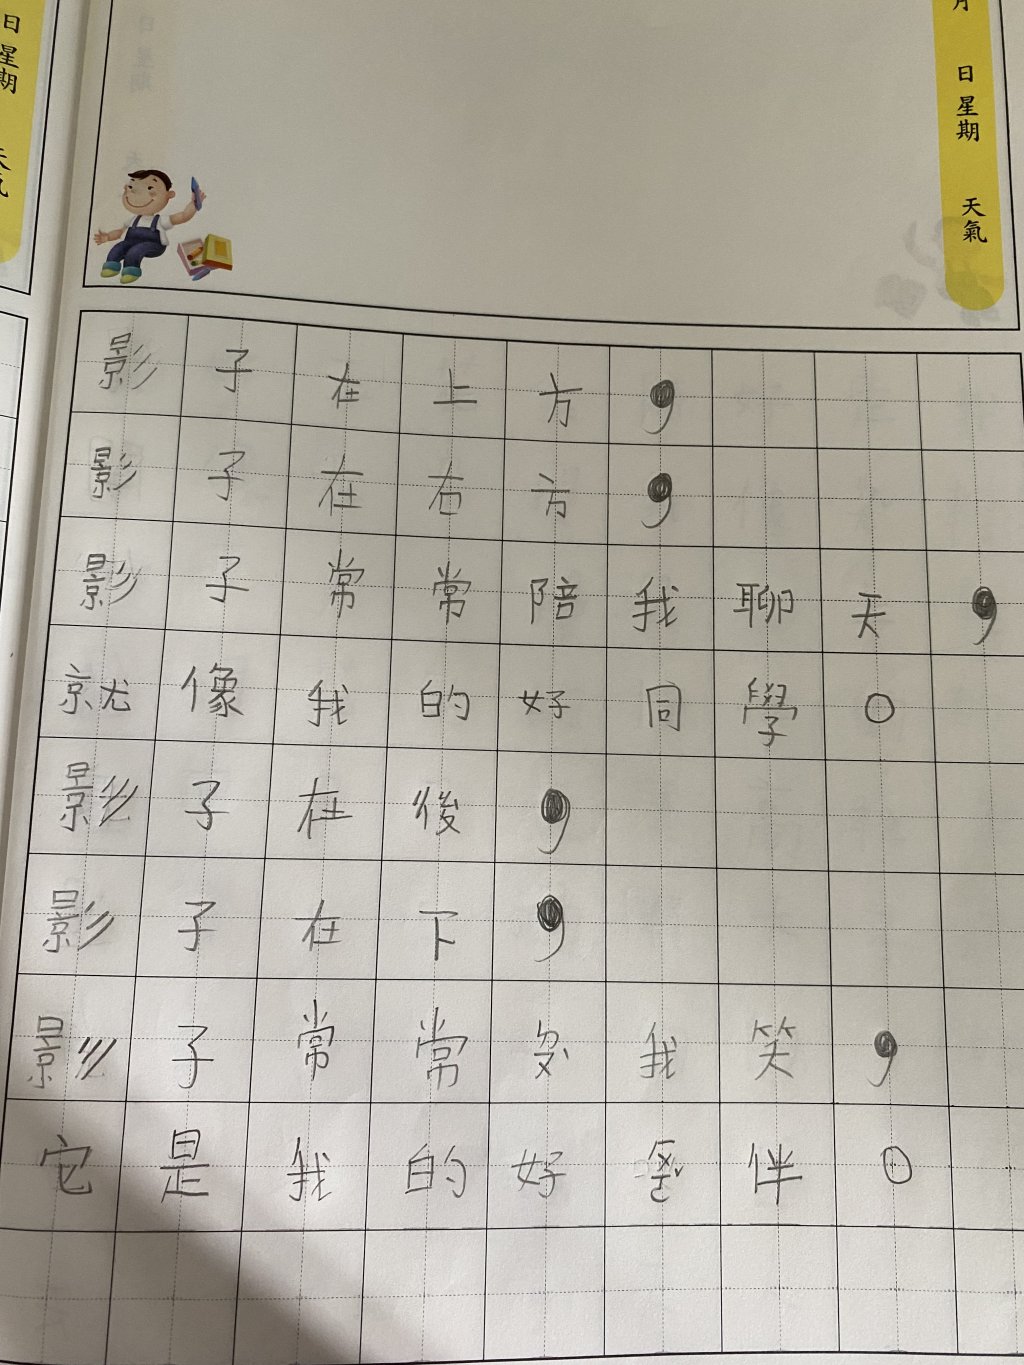 日 星期 天氣
月 日 星期 天氣
影子在上方，
影子在右方，
影子常常陪我聊天，
就像我的好同學。
影子在後，
影子在下，
影子常常我笑，
它是我的好伴。